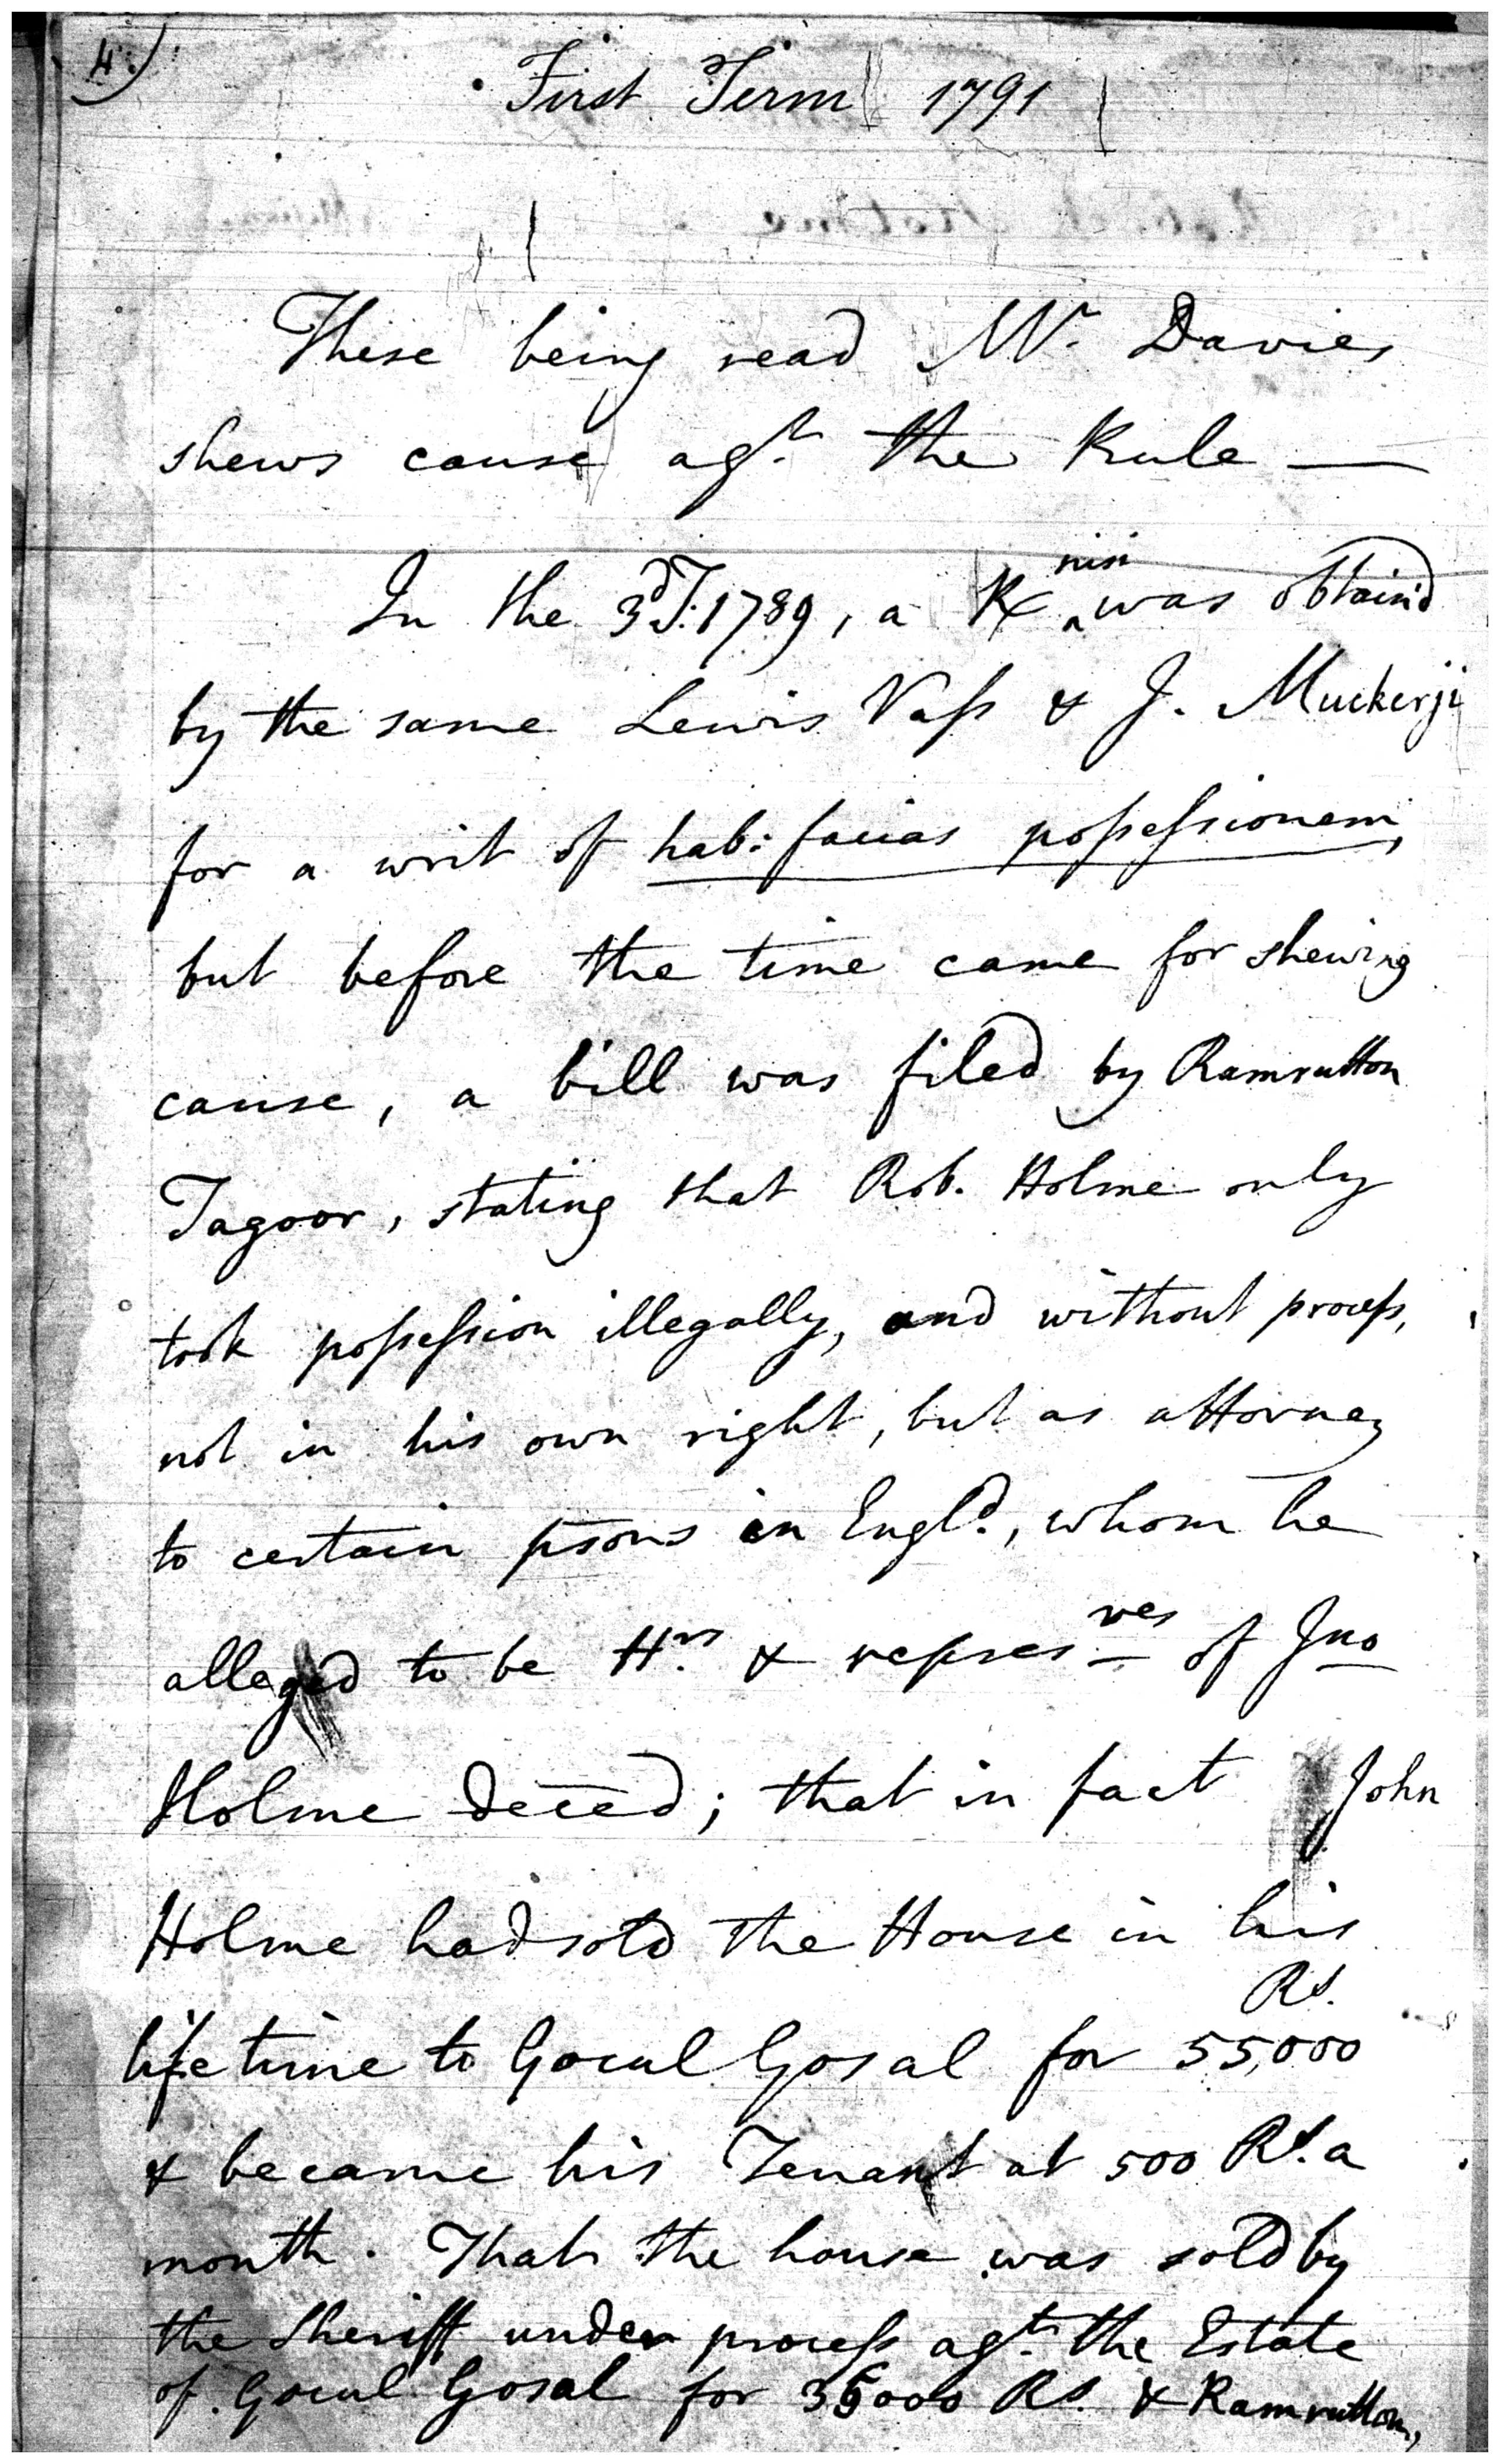 4.)
First Term 1791
These being read Mr. Davies
shews cause agt. the Rule —
nisi
In the 3d T. 1789, a R ‸ was obtain'd
by the same Lewis Vaſs & J. Muckerji
for a writ of hab: facias poſseſsionem,
but before the time came for shewing
cause, a bill was filed by Ramrutton
Tagoor, stating that Rob. Holme only
took poſseſsion illegally, and without proceſs,
not in his own right, but as attorney
to certain psons in Engld., whom he
alleged to be Hrs. & represves of Jno
Holme deced; that in fact John
Holme had sold the House in his
Rs.
life time to Gocul Gosal for 55,000
& became his Tenant at 500 Rs. a
month. That the house was sold by
the Sheriff under proceſs agt. the Estate
of Gocul Gosal for 36000 Rs. & Ramrutton,